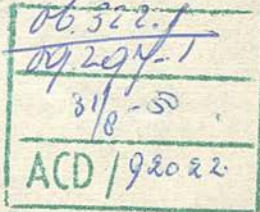 06.322.1
09.297-1
31/8-50
ACD / 92022.